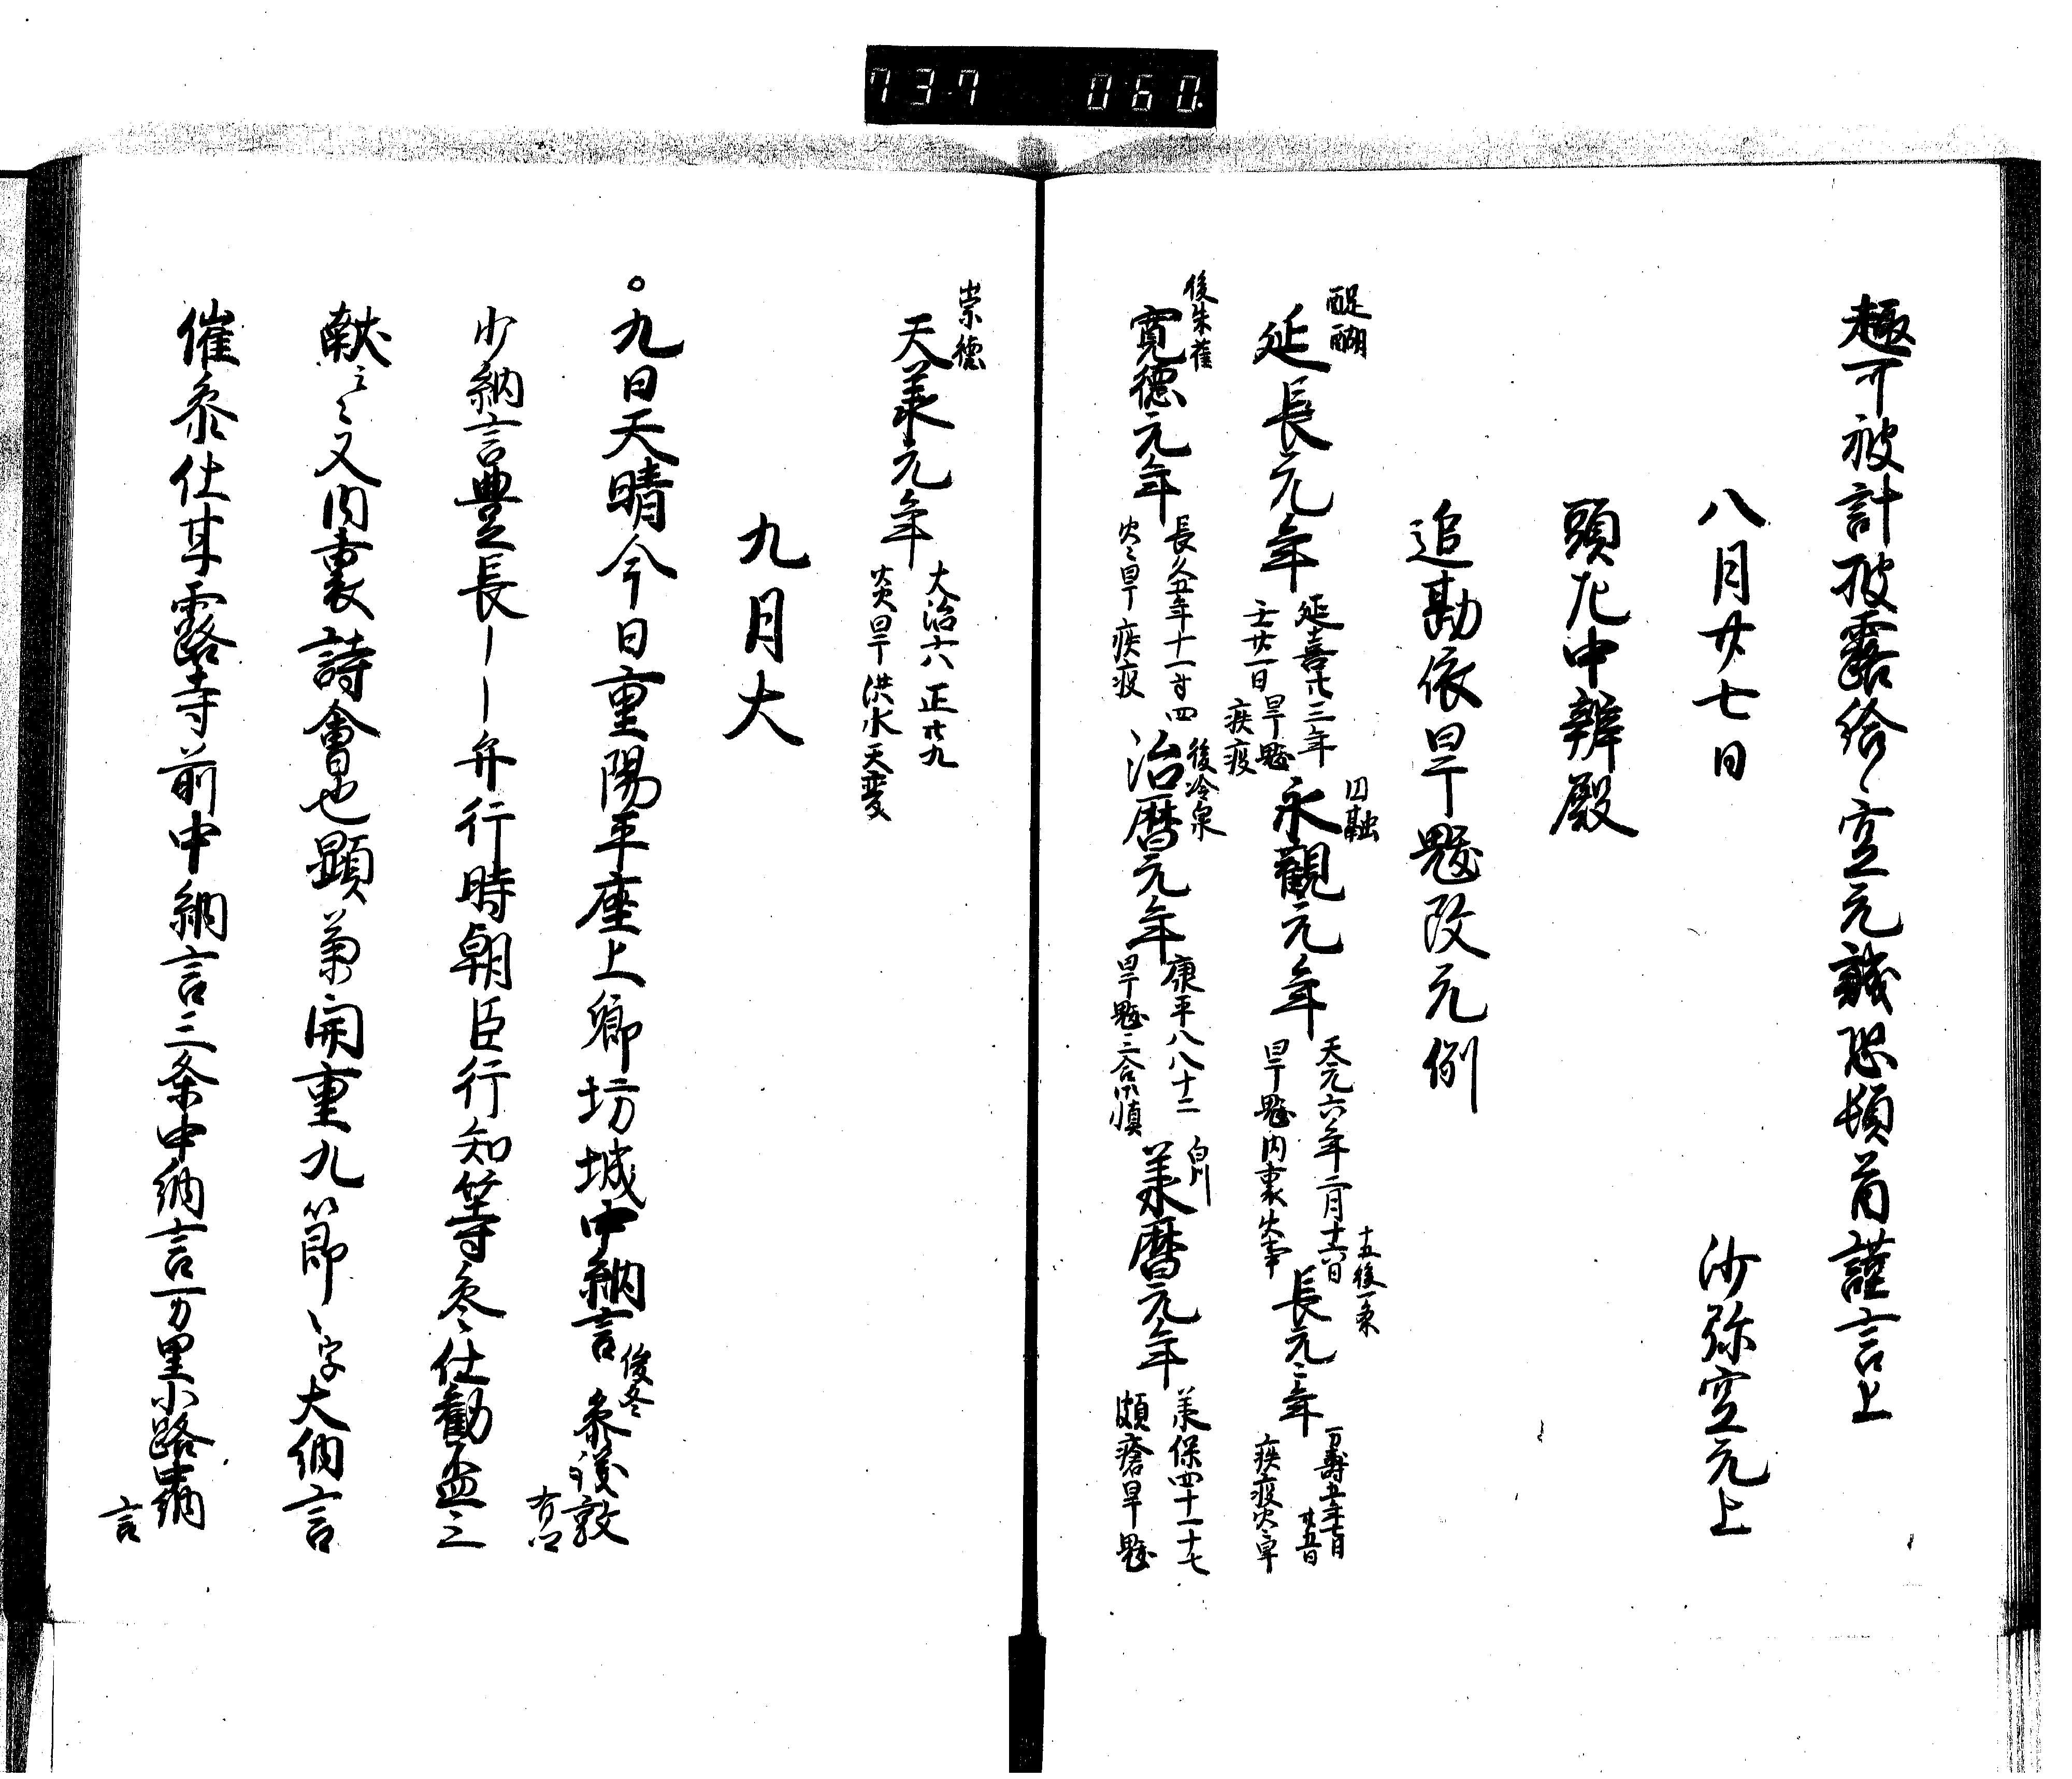 737 060.
趣可被計披露給、空元誠恐頓首謹言上
八月廿七日 沙弥空元上
頭左中辨殿
追勘依旱魃改元例
醍醐
延長元年
延喜廿三年
壬廿一日 旱魃疾疫
円融
永觀元年
天元六年
十五日
旱魃内裏火事
後一条
長元々年
万壽五年七月廿五日
疾疫炎旱
後朱雀
寛德元年
長久五年十一廿四
炎旱疾疫
後冷泉
治暦元年
康平八八十二
旱魃三合御慎
白川
羕暦元年
羕保四十一十七
皰瘡旱魃
崇德
天羕元年
大治六正廿九
炎旱洪水天変
九月大
○九日天晴今日重陽平座上卿坊城中納言俊冬参議敦有卿
少納言豊長――弁行時朝臣行知等参仕勸盃三
献云々又内裏詩會也題菊開重九節、字大納言
催参仕甘露寺前中納言三条中納言万里小路中納言